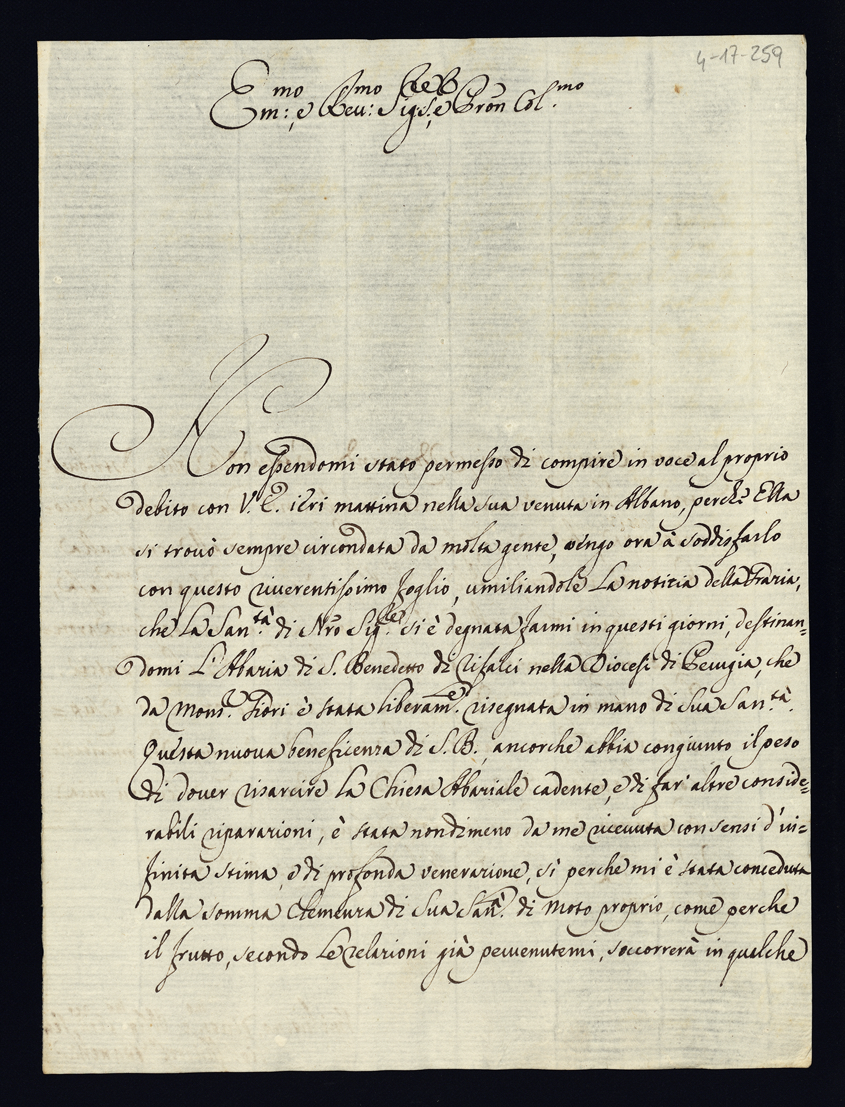 4-17-259
Em:mo e Reu:mo Sig.re e Pron Col.mo
Non essendomi stato permesso di compire in voce al proprio
debito con V. E. ieri mattina nella sua venuta in Albano, perche Ella
si trouò sempre circondata da molta gente, vengo ora à soddisfarlo
con questo riuerentissimo foglio, umiliandole La notizia della Grazia,
che La San.tà di Nro Sig.re si è degnata farmi in questi giorni, destinan=
domi L'Abazia di S. Benedetto di nella Diocesi di Perugia, che
da Mons.r Fiori è stata liberam.e risegnata in mano di Sua San.tà.
Questa nuova beneficenza di S. B., ancorche abbia congiunto il peso
di dover risarcire La Chiesa Abaziale cadente, e di far' altre conside=
rabili riparazioni, è stata nondimeno da me riceuuta con sensi d'in=
finita stima, e di profonda venerazione, sì perche mi è stata conceduta
dalla somma Clemenza di Sua San.tà di Moto proprio, come perche
il frutto, secondo Le relazioni già peruenutemi, soccorrerà in qualche